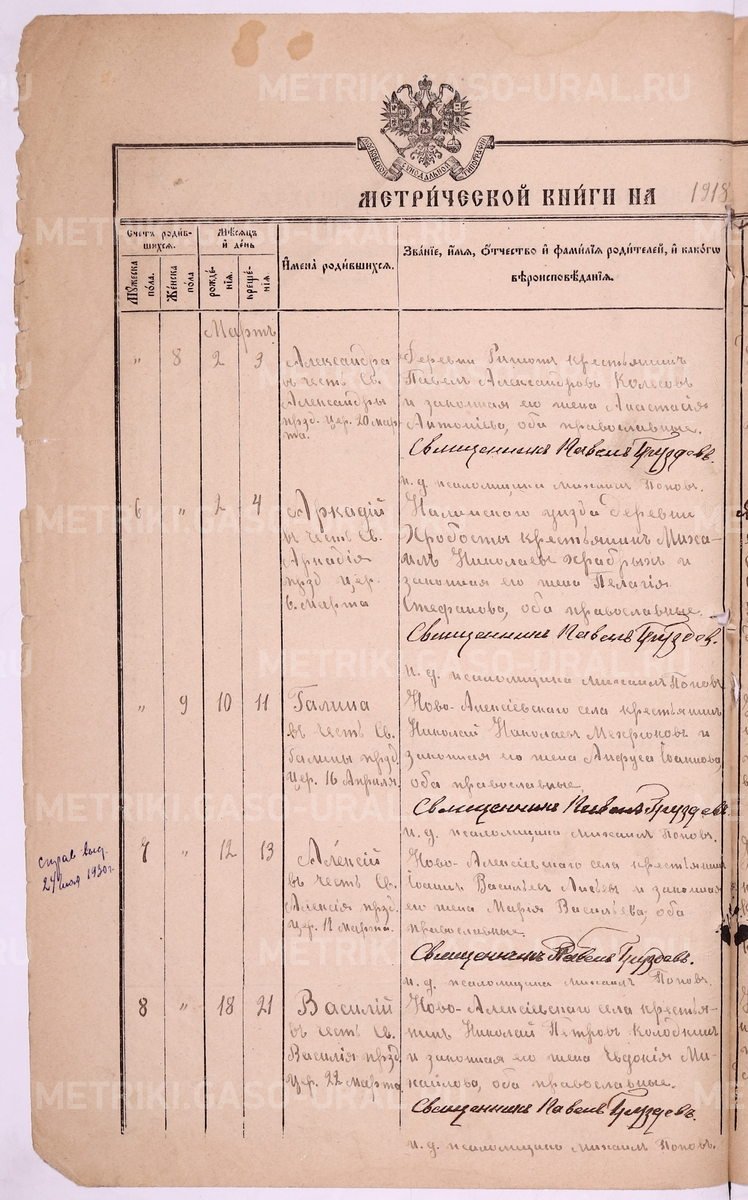 METRIKI.GASO-URAL.RU
МОСКОВСКОЙ СѴНОДАЛЬНОЙ ТИПОГРАФІИ
МЕТРИ́ЧЕСКОЙ КНИ́ГИ НА 1918
Счетъ роди́в-шихся.
Мꙋ́жеска по́ла.
Же́нска по́ла
Мѣ́сяцъ и҆ де́нь
рожде́нїя.
креще́нїя.
И҆мена̀ роди́вшихся.
Зва́нїе, и҆́мя, ѻ҆́тчество и҆ фами́лїѧ роди́телей, и҆ како́гѡ
вѣроисповѣ́данїя.
Мартъ
" 8 2 3
Александра
въ честь Св.
Александры
прзд. цер. 20 мар
та.
деревни крестьянинъ
Павелъ Александровъ Колесовъ
и законная его жена Анастасія
Антоніева, оба православные.
Священникъ Павелъ Груздевъ.
и. д. псаломщика Михаилъ Поповъ.
6 " 2 4
Аркадій
въ честь Св.
Аркадія
прзд. цер.
6. Марта
уѣзда деревни
крестьянинъ Миха-
илъ Николаевъ Храбрыхъ и
законная его жена Пелагія
Стефанова, оба православные.
Священникъ Павелъ Груздевъ.
и. д. псаломщика Михаилъ Поповъ.
" 9 10 11
Галина
въ честь Св.
Галины прзд.
цер. 16 Апрѣля
Ново-Алексіевскаго села крестьянинъ
Николай Николаевъ и
законная его жена Анфуса Іоаннова,
оба православные.
Священникъ Павелъ Груздевъ.
и. д. псаломщика Михаилъ Поповъ.
справ. выд.
24 1930 г.
7 " 12 13
Алексій
въ честь Св.
Алексія прзд.
цер. Марта.
Ново-Алексіевскаго села крестьянинъ
Іоаннъ Васильевъ и законная
его жена Марія Васильева, оба
православные.
Священникъ Павелъ Груздевъ.
и. д. псаломщика Михаилъ Поповъ.
8 " 18 21
Василій
въ честь Св.
Василія прзд.
цер. 22 Марта
Ново-Алексіевскаго села крестья-
нинъ Николай Петровъ Колобкинъ
и законная его жена Евдокія Ми-
хайлова, оба православные.
Священникъ Павелъ Груздевъ.
и. д. псаломщика Михаилъ Поповъ.